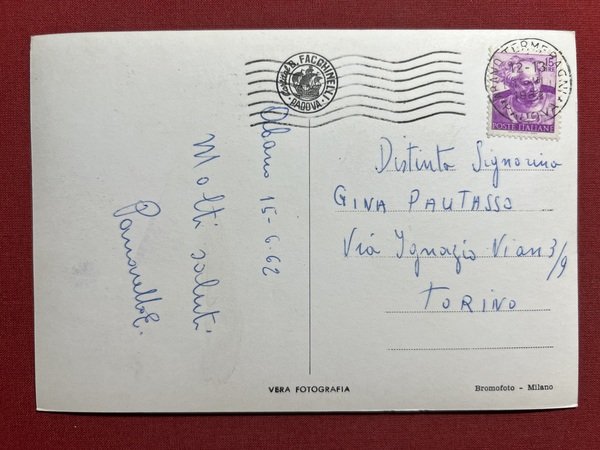 B. FACCHINELLI
PADOVA
ABANO TERME
12-13
15
1962
POSTE ITALIANE
Abano 15-6-62
Molti saluti
Distinta Signorina
GINA PAUTASSO
Via Ignazio Vian 3/9
TORINO
VERA FOTOGRAFIA
Bromofoto - Milano